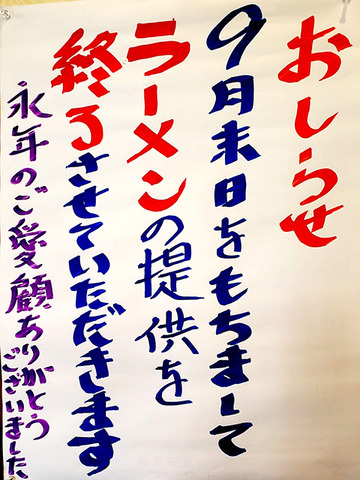 おしらせ
9月末日をもちまして
ラーメンの提供を
終るさせていただきます
永年のご愛顧ありがとう
ございました